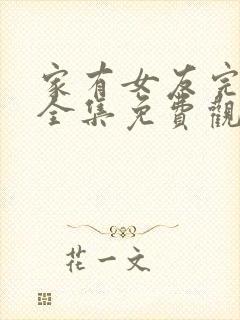 家有女友完
全集免費觀
花一文